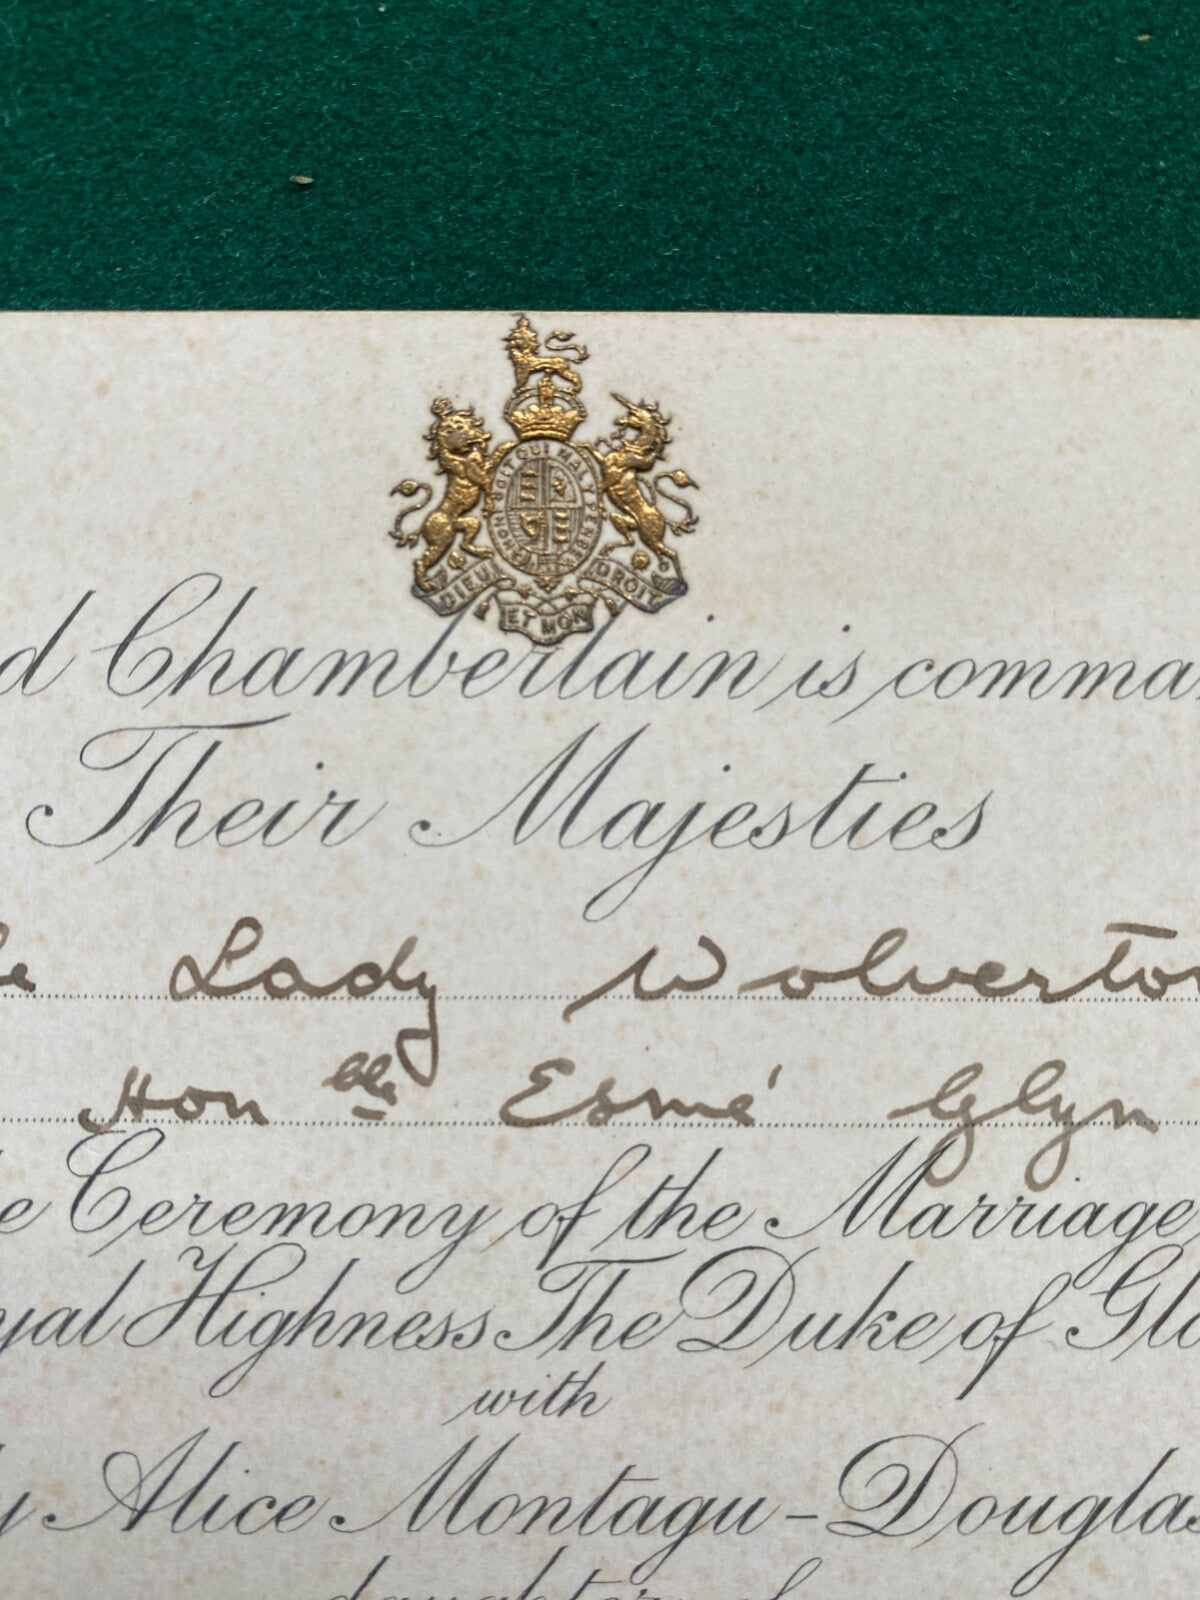 HONI SOIT QUI MAL Y PENSE
DIEU ET MON DROIT
d Chamberlain is comma
Their Majesties
e Lady Wolverto
Honble Esmé Glyn
e Ceremony of the Marriage
yal Highness The Duke of Glo
with
y Alice Montagu-Douglas
daughter of